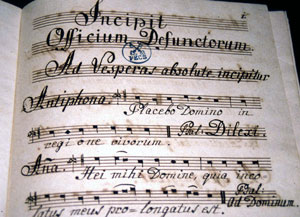 Incipit
Officium Defunctorum.
Ad Vesperas absolute incipitur
Antiphona.
Placebo Domino in
Psal. Dilexi.
regi one vivorum
Aña.
Hei mihi Domine, quia inco
Psal.
Ad Dominum.
latus meus pro=longatus est.